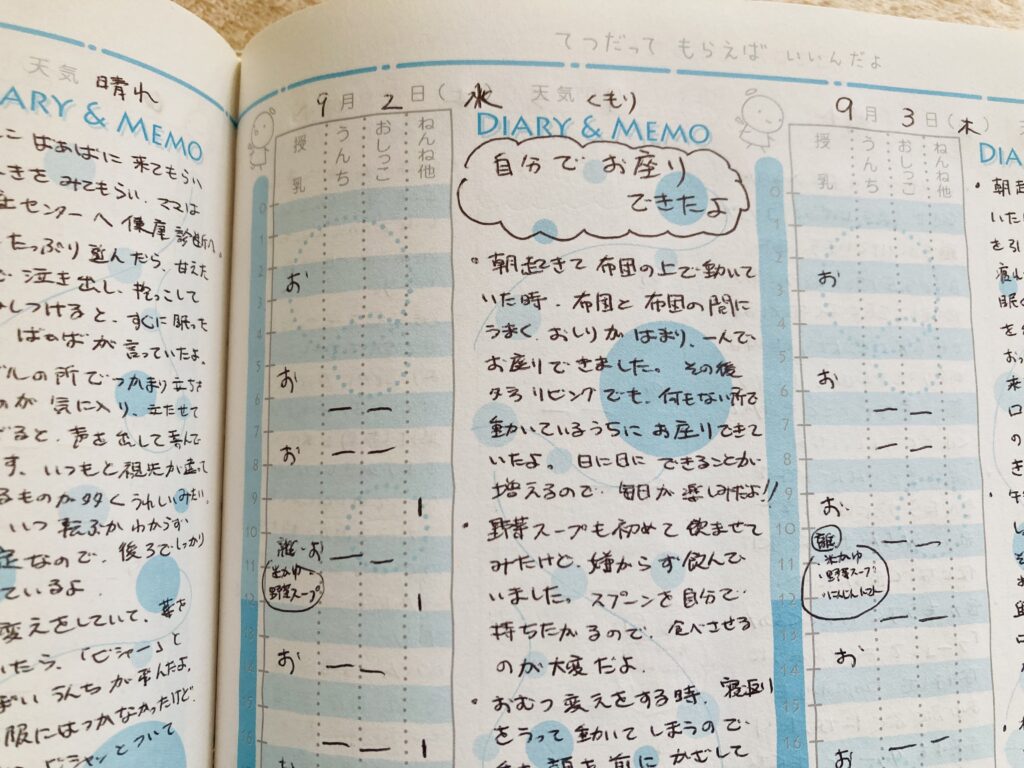 天気 晴れ
DIARY & MEMO
ばぁばに 来てもらい
みてもらい、ママは
センターへ 健康診断へ。
たっぷり 遊んだら、甘えた
で 泣き出し、抱っこして
すぐに 眠った
ばぁばが 言っていたよ。
ルの 所で つかまり立ち
のが 気に入り、立たせて
ると、声を出して 喜んで
す。いつもと 視点が 違って
るものが 多く うれしいみたい。
いつ 転ぶか わからず
なので、後ろで しっかり
ているよ
変えをしていて、薬を
いたら、「ビシャー」と
ぽい うんちが 飛んだよ。
服には つかなかったけど、
ついて
てつだって もらえば いいんだよ
9月 2日(水) 天気 くもり
DIARY & MEMO
授乳
うんち
おしっこ
ねんね他
0
1
2
お
3
4
5
お
6
7
8
お
9
10
離・お
11
米がゆ
野菜スープ
12
13
14
お
15
16
自分で お座り
できたよ
・朝起きて 布団の上で動いて
いた時、布団と 布団の間に
うまく おしりが はまり、一人で
お座りできました。その後
リビングでも、何もない所で
動いているうちに お座りできて
いたよ。日に日に できることが
増えるので、毎日が 楽しみだよ!!
・野菜スープも 初めて 飲ませて
みたけど、嫌がらず 飲んで
いました。スプーンを自分で
持ちたがるので、食べさせる
のが 大変だよ。
・おむつ変えをする時、寝返り
をうって 動いて しまうので
を 前に かざして
9月 3日(木)
DIA
授乳
うんち
おしっこ
ねんね他
0
1
2
お
3
4
5
お
6
7
8
9
お
10
離
11
米がゆ
野菜スープ
にんじん
12
13
14
お
15
16
お
・朝起
いた
を引